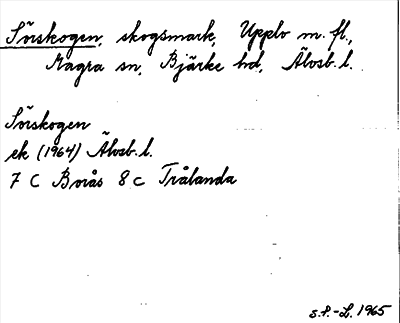 Sörskogen, skogsmark, Upplo m. fl.,
Magra sn, Bjärke hd, Älvsb. l.
Sörskogen
ek (1964) Älvsb. l.
7 C Borås 8 c Trålanda
S.F.-L. 1965